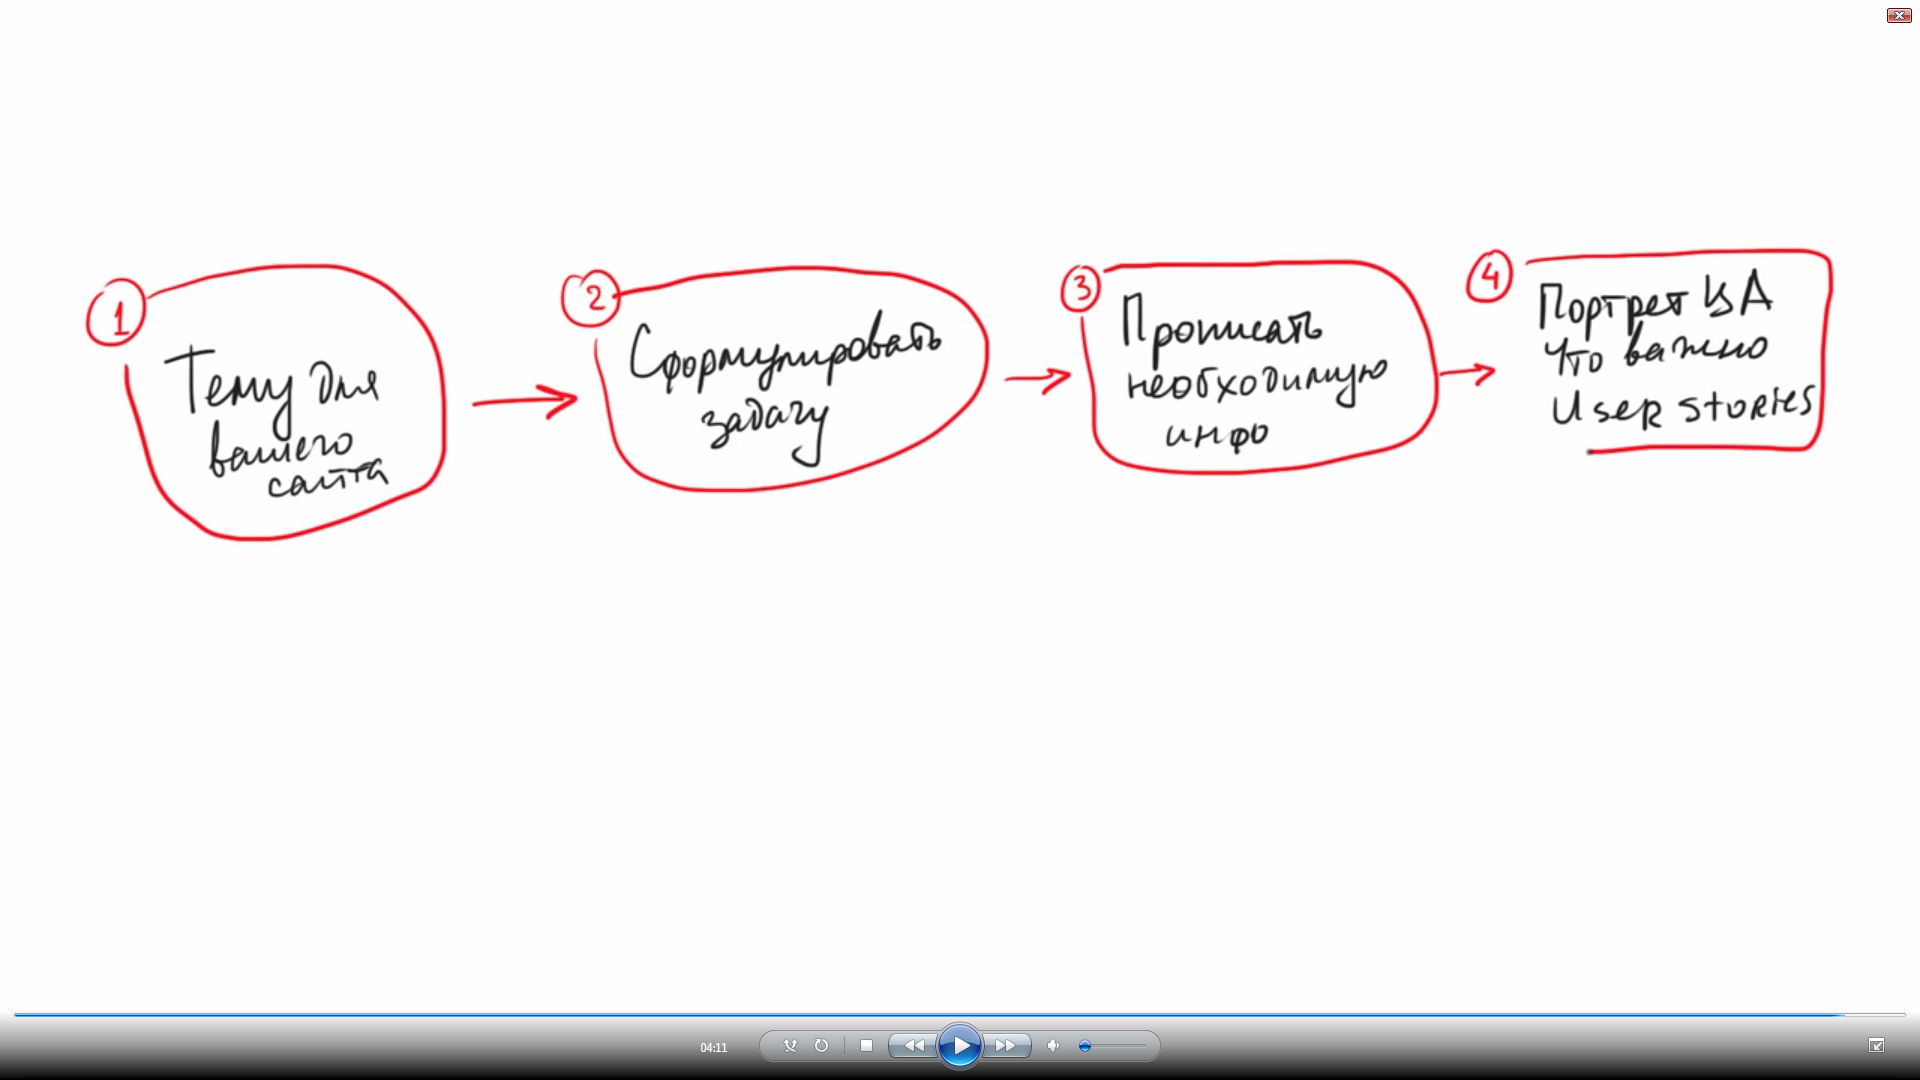 1
Тему для
вашего
сайта
2
Сформулировать
задачу
3
Прописать
необходимую
инфо
4
Портрет ЦА
Что важно
User stories
04:11